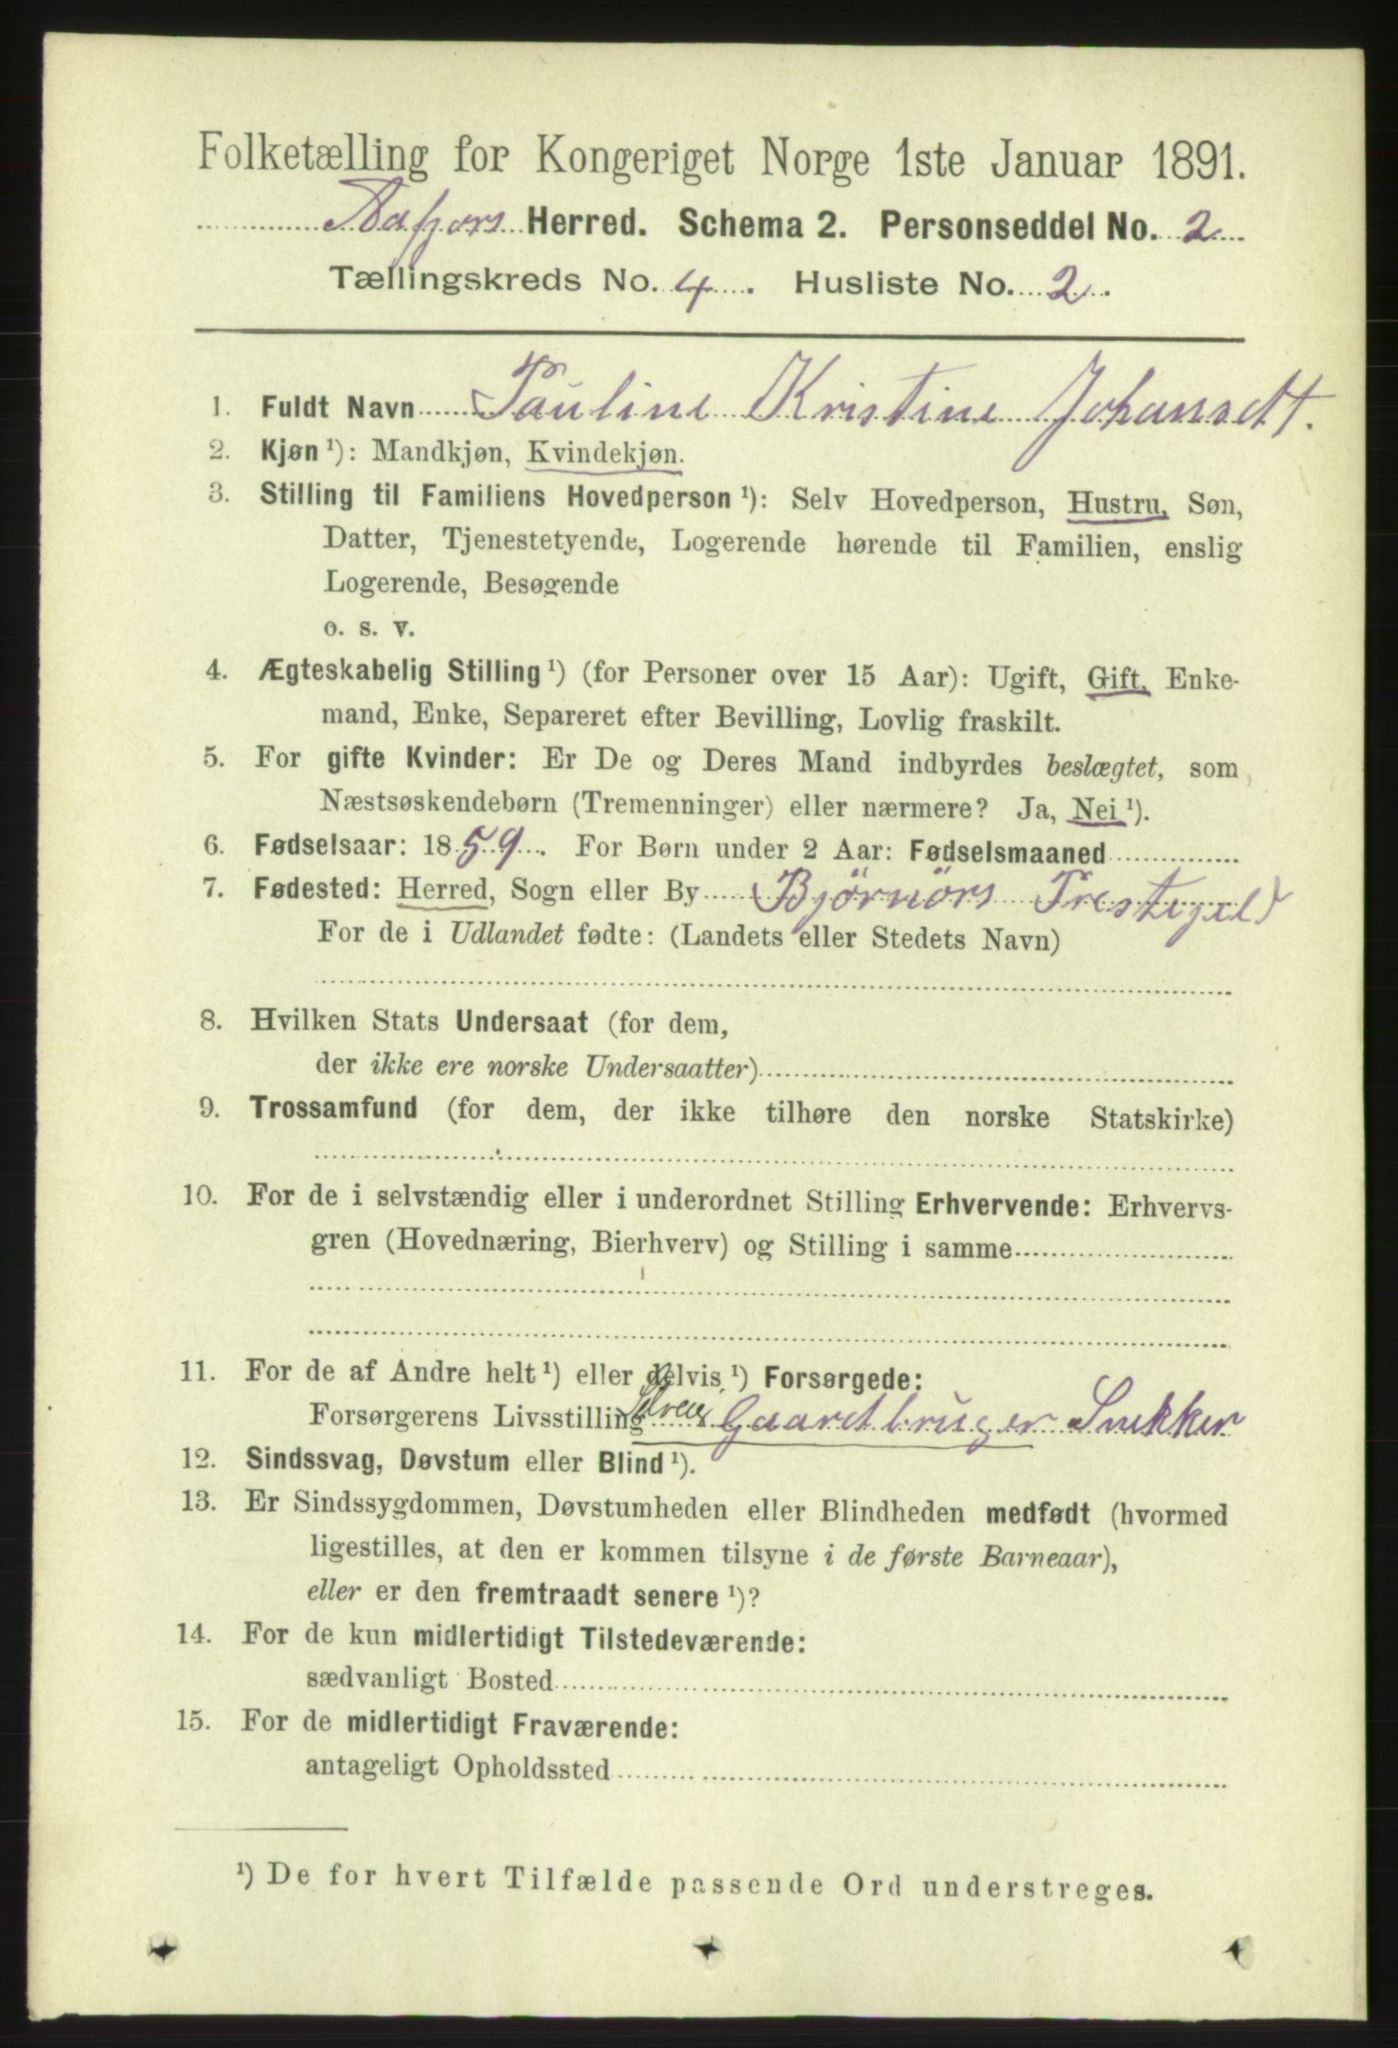 Folketælling for Kongeriget Norge 1ste Januar 1891.
Aafjors Herred. Schema 2. Personseddel No. 2
Tællingskreds No. 4. Husliste No. 2.
1. Fuldt Navn Pauline Kristine Johansdt.
2. Kjøn ¹): Mandkjøn, Kvindekjøn.
3. Stilling til Familiens Hovedperson ¹): Selv Hovedperson, Hustru, Søn,
Datter, Tjenestetyende, Logerende hørende til Familien, enslig
Logerende, Besøgende
o. s. v.
4. Ægteskabelig Stilling ¹) (for Personer over 15 Aar): Ugift, Gift, Enke-
mand, Enke, Separeret efter Bevilling, Lovlig fraskilt.
5. For gifte Kvinder: Er De og Deres Mand indbyrdes beslægtet, som
Næstsøskendebørn (Tremenninger) eller nærmere? Ja, Nei ¹).
6. Fødselsaar: 1859. For Børn under 2 Aar: Fødselsmaaned
7. Fødested: Herred, Sogn eller By Bjørnørs Prestegjeld
For de i Udlandet fødte: (Landets eller Stedets Navn)
8. Hvilken Stats Undersaat (for dem,
der ikke ere norske Undersaatter)
9. Trossamfund (for dem, der ikke tilhøre den norske Statskirke)
10. For de i selvstændig eller i underordnet Stilling Erhvervende: Erhvervs-
gren (Hovednæring, Bierhverv) og Stilling i samme
11. For de af Andre helt ¹) eller delvis ¹) Forsørgede:
Forsørgerens Livsstilling Gaardbruger Snekker
12. Sindssvag, Døvstum eller Blind ¹).
13. Er Sindssygdommen, Døvstumheden eller Blindheden medfødt (hvormed
ligestilles, at den er kommen tilsyne i de første Barneaar),
eller er den fremtraadt senere ¹)?
14. For de kun midlertidigt Tilstedeværende:
sædvanligt Bosted
15. For de midlertidigt Fraværende:
antageligt Opholdssted
¹) De for hvert Tilfælde passende Ord understreges.